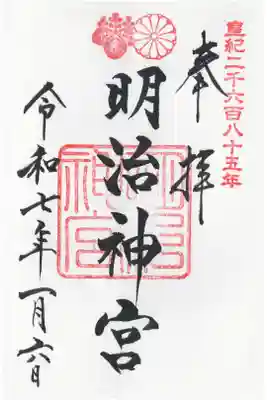 皇紀二千六百八十五年
奉拝
明治神宮
令和七年一月六日